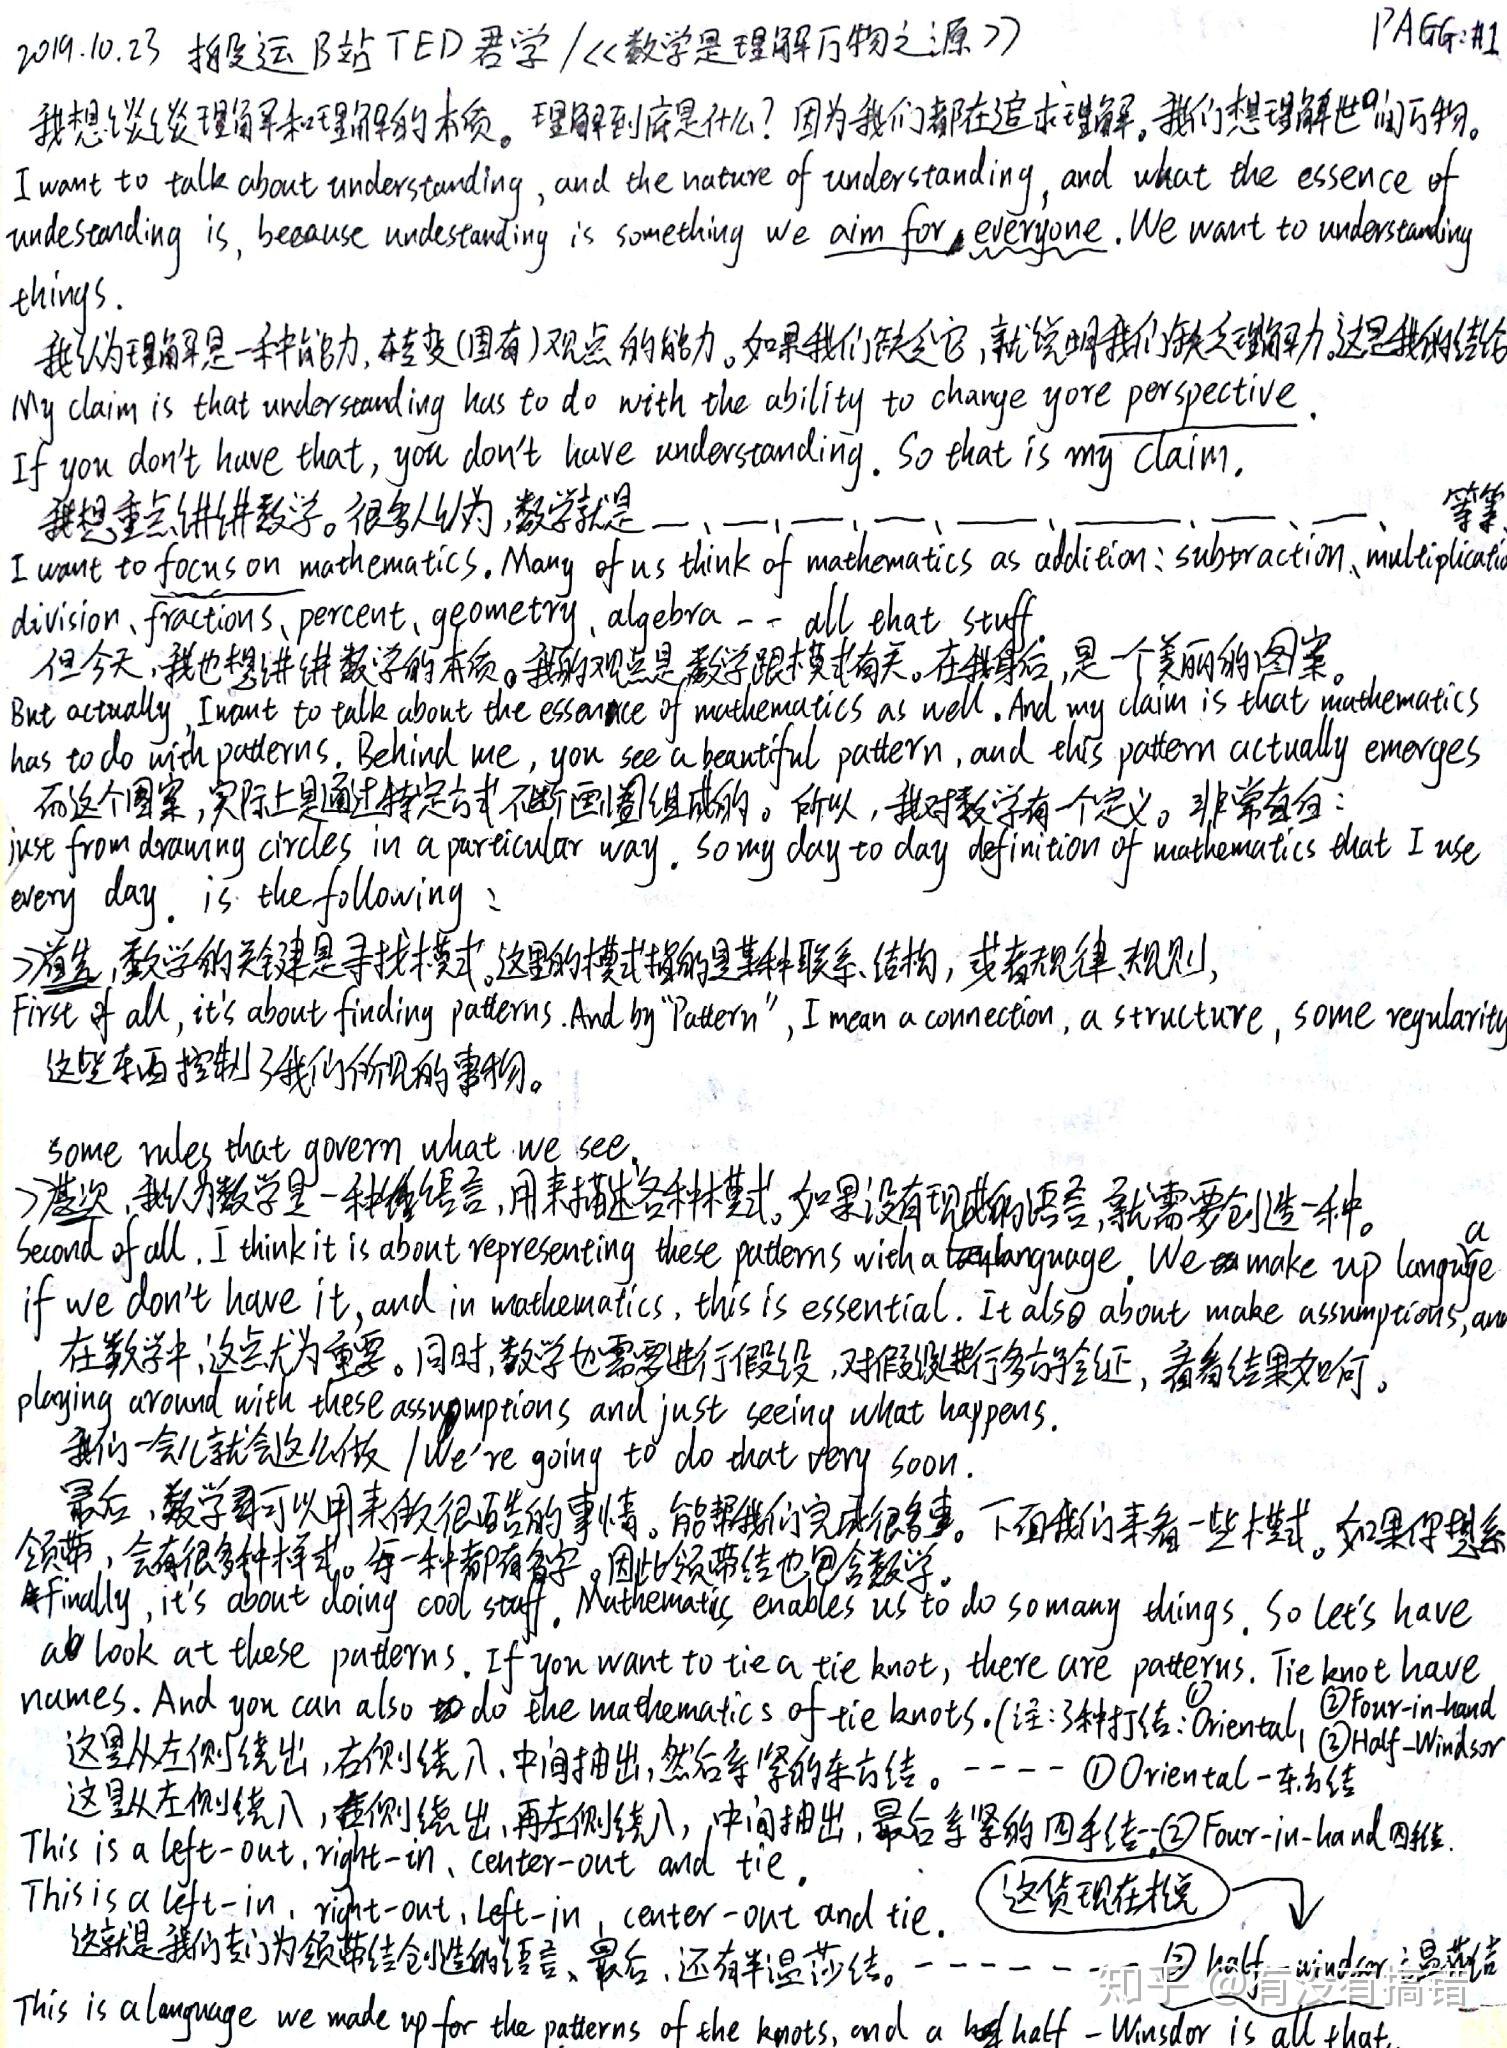 2019.10.23 搬运B站TED君学/<<数学是理解万物之源>>
PAGG:#1
我想谈谈理解和理解的本质。理解到底是什么?因为我们都在追求理解。我们想理解世间万物。
I want to talk about understanding, and the nature of understanding, and what the essence of
undestanding is, because undestanding is something we aim for, everyone. We want to understanding
things.
我认为理解是一种能力,在转变(固有)观点的能力。如果我们缺乏它,就说明我们缺乏理解力。这是我的结论
My claim is that understanding has to do with the ability to change yore perspective.
If you don't have that, you don't have understanding. So that is my claim.
我想重点讲讲数学。很多人认为,数学就是 —、—、—、—、—、—、—、—、等等
I want to focus on mathematics. Many of us think of mathematics as addition: subtraction、multiplicatio
division、fractions、percent、geometry、algebra -- all that stuff.
但今天,我也想讲讲数学的本质。我的观点是数学跟模式有关。在我身后,是一个美丽的图案。
But actually, I want to talk about the essence of mathematics as well. And my claim is that mathematics
has to do with patterns. Behind me, you see a beautiful pattern, and this pattern actually emerges
而这个图案,实际上是通过特定方式不断画圈组成的。所以,我对数学有一个定义。非常直白:
just from drawing circles in a particular way. So my day to day definition of mathematics that I use
every day. is the following:
>首先,数学的关键是寻找模式。这里的模式指的是某种联系、结构,或者规律、规则,
First of all, it's about finding patterns. And by "Pattern", I mean a connection, a structure, some regularity
这些东西控制了我们所见的事物。
some rules that govern what we see.
>其次,我认为数学是一种语言,用来描述各种模式。如果没有现成的语言,就需要创造一种。
Second of all. I think it is about representing these patterns with a language. We make up a language
if we don't have it, and in mathematics, this is essential. It also about make assumptions, an
在数学中,这点尤为重要。同时,数学也需要进行假设,对假设进行多方验证,看看结果如何。
playing around with these assumptions and just seeing what happens.
我们一会儿就会这么做/We're going to do that very soon.
最后,数学可以用来做很酷的事情。能帮我们完成很多事。下面我们来看一些模式。如果你想系
领带,会有很多种样式。每一种都有名字。因此领带结也包含数学。
Finally, it's about doing cool stuff. Mathematics enables us to do so many things. So let's have
a look at these patterns. If you want to tie a tie knot, there are patterns. Tie knot have
names. And you can also do the mathematics of tie knots.(注:3种打结:①Oriental, ②Four-in-hand
③Half-Windsor
这里从左侧绕出,右侧绕入、中间抽出,然后系紧的东方结。---- ①Oriental-东方结
这里从左侧绕入,右侧绕出、再左侧绕入,中间抽出,最后系紧的四手结--②Four-in-hand四手结.
This is a left-out, right-in、center-out and tie.
This is a left-in, right-out, Left-in, center-out and tie.
这货现在才说
这就是我们专门为领带结创造的语言、最后、还有半温莎结。------- ③half-windsor温莎结
This is a language we made up for the patterns of the knots, and a half-Winsdor is all that.
知乎 @有没有搞错